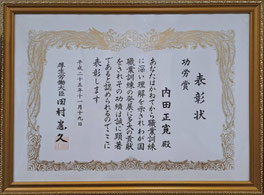 表彰状
功労賞
内田正寛 殿
あなたはかねてから職業訓練
に深い理解を示されわが国
職業訓練の発展に多大の貢献
をされその功績は誠に顕著
であると認められるのでここに
表彰します
平成二十五年十一月十九日
厚生労働大臣 田村憲久